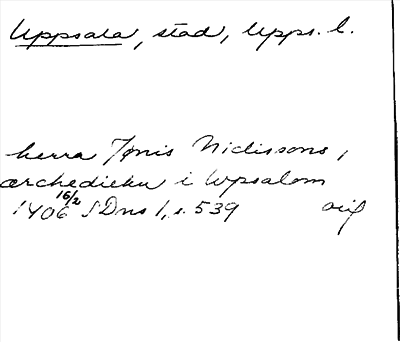 Uppsala, stad, Upps. l.
herra Jønis Nidissons,
ærchediekn i Upsalom
1406 16/2 SDns 1, s. 539 orig